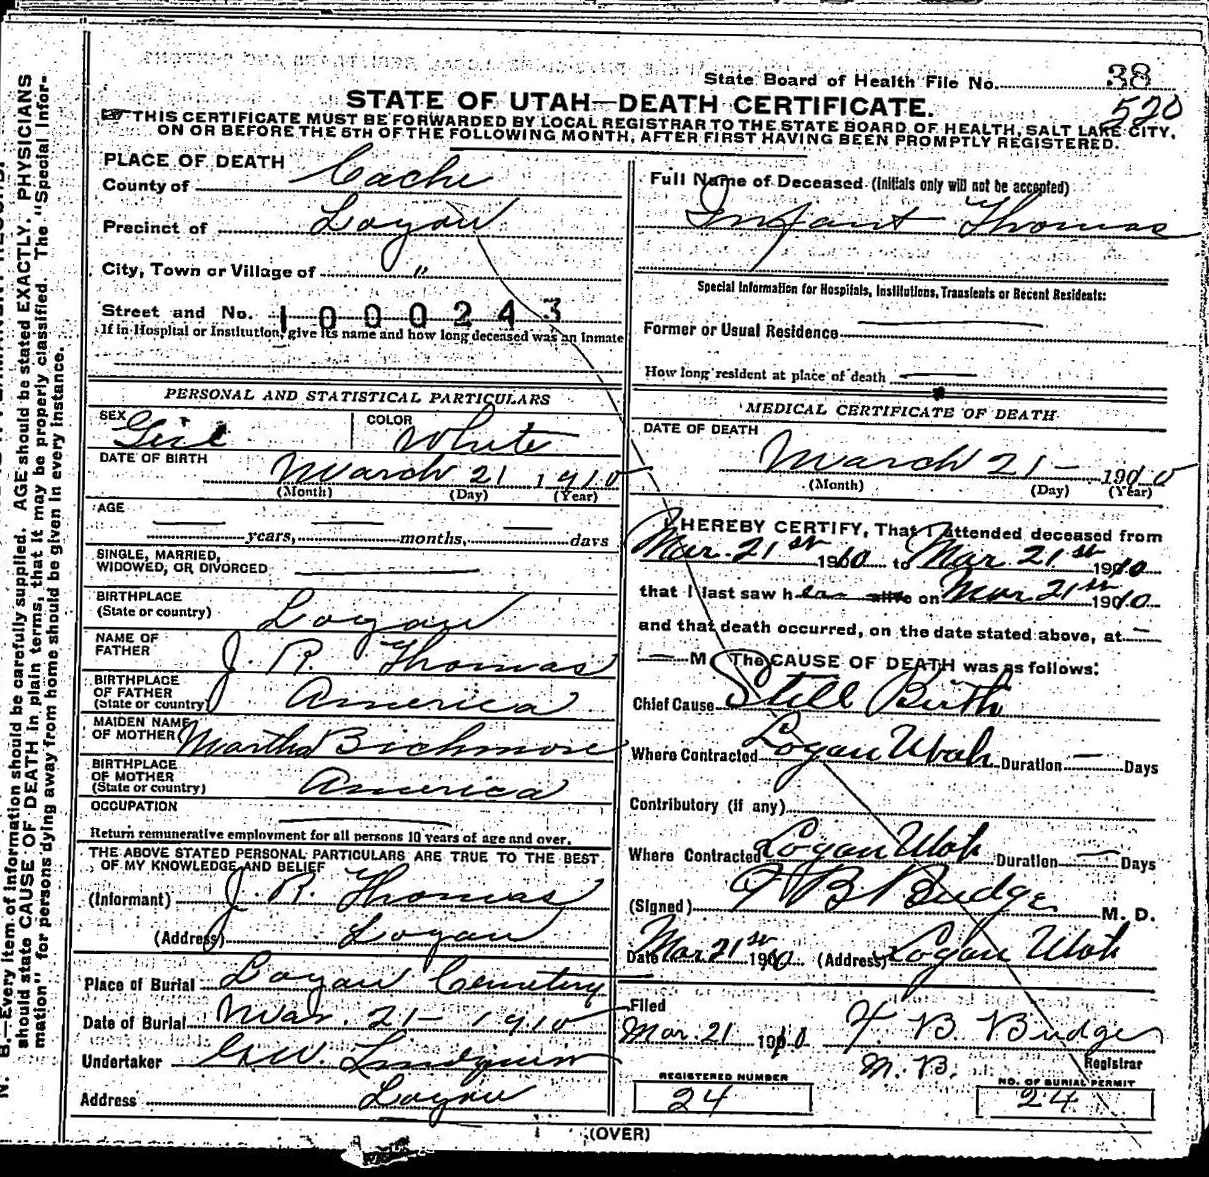 State Board of Health File No. 38
520
STATE OF UTAH—DEATH CERTIFICATE.
THIS CERTIFICATE MUST BE FORWARDED BY LOCAL REGISTRAR TO THE STATE BOARD OF HEALTH, SALT LAKE CITY,
ON OR BEFORE THE 5TH OF THE FOLLOWING MONTH, AFTER FIRST HAVING BEEN PROMPTLY REGISTERED.
PLACE OF DEATH
County of Cache
Precinct of Logan
City, Town or Village of "
Street and No. 1000243
If in Hospital or Institution, give its name and how long deceased was an Inmate
PERSONAL AND STATISTICAL PARTICULARS
SEX Girl COLOR White
DATE OF BIRTH March 21 1910
(Month) (Day) (Year)
AGE
— years, — months, — days
SINGLE, MARRIED,
WIDOWED, OR DIVORCED —
BIRTHPLACE
(State or country) Logan
NAME OF
FATHER J. R. Thomas
BIRTHPLACE
OF FATHER
(State or country) America
MAIDEN NAME
OF MOTHER Martha Bichmore
BIRTHPLACE
OF MOTHER
(State or country) America
OCCUPATION —
Return remunerative employment for all persons 10 years of age and over.
THE ABOVE STATED PERSONAL PARTICULARS ARE TRUE TO THE BEST
OF MY KNOWLEDGE AND BELIEF
(Informant) J. R. Thomas
(Address) Logan
Place of Burial Logan Cemetery
Date of Burial Mar. 21 - 1910
Undertaker
Address Logan
Full Name of Deceased (Initials only will not be accepted)
Infant Thomas
Special Information for Hospitals, Institutions, Transients or Recent Residents:
Former or Usual Residence —
How long resident at place of death —
MEDICAL CERTIFICATE OF DEATH
DATE OF DEATH
March 21 - 1910
(Month) (Day) (Year)
I HEREBY CERTIFY, That I attended deceased from
Mar. 21st 1910 to Mar 21st 1910
that I last saw her alive on Mar 21st 1910
and that death occurred, on the date stated above, at —
— M. The CAUSE OF DEATH was as follows:
Chief Cause Still Birth
Where Contracted Logan Utah Duration — Days
Contributory (if any)
Where Contracted Logan Utah Duration — Days
(Signed) F B Budge M. D.
Date Mar 21st 1910 (Address) Logan Utah
Filed
Mar. 21 1910 F. B. Budge
M. B. Registrar
REGISTERED NUMBER
24
NO. OF BURIAL PERMIT
24
(OVER)
N. B.—Every item of information should be carefully supplied. AGE should be stated EXACTLY. PHYSICIANS
should state CAUSE OF DEATH in plain terms, that it may be properly classified. The "Special Infor-
mation" for persons dying away from home should be given in every instance.